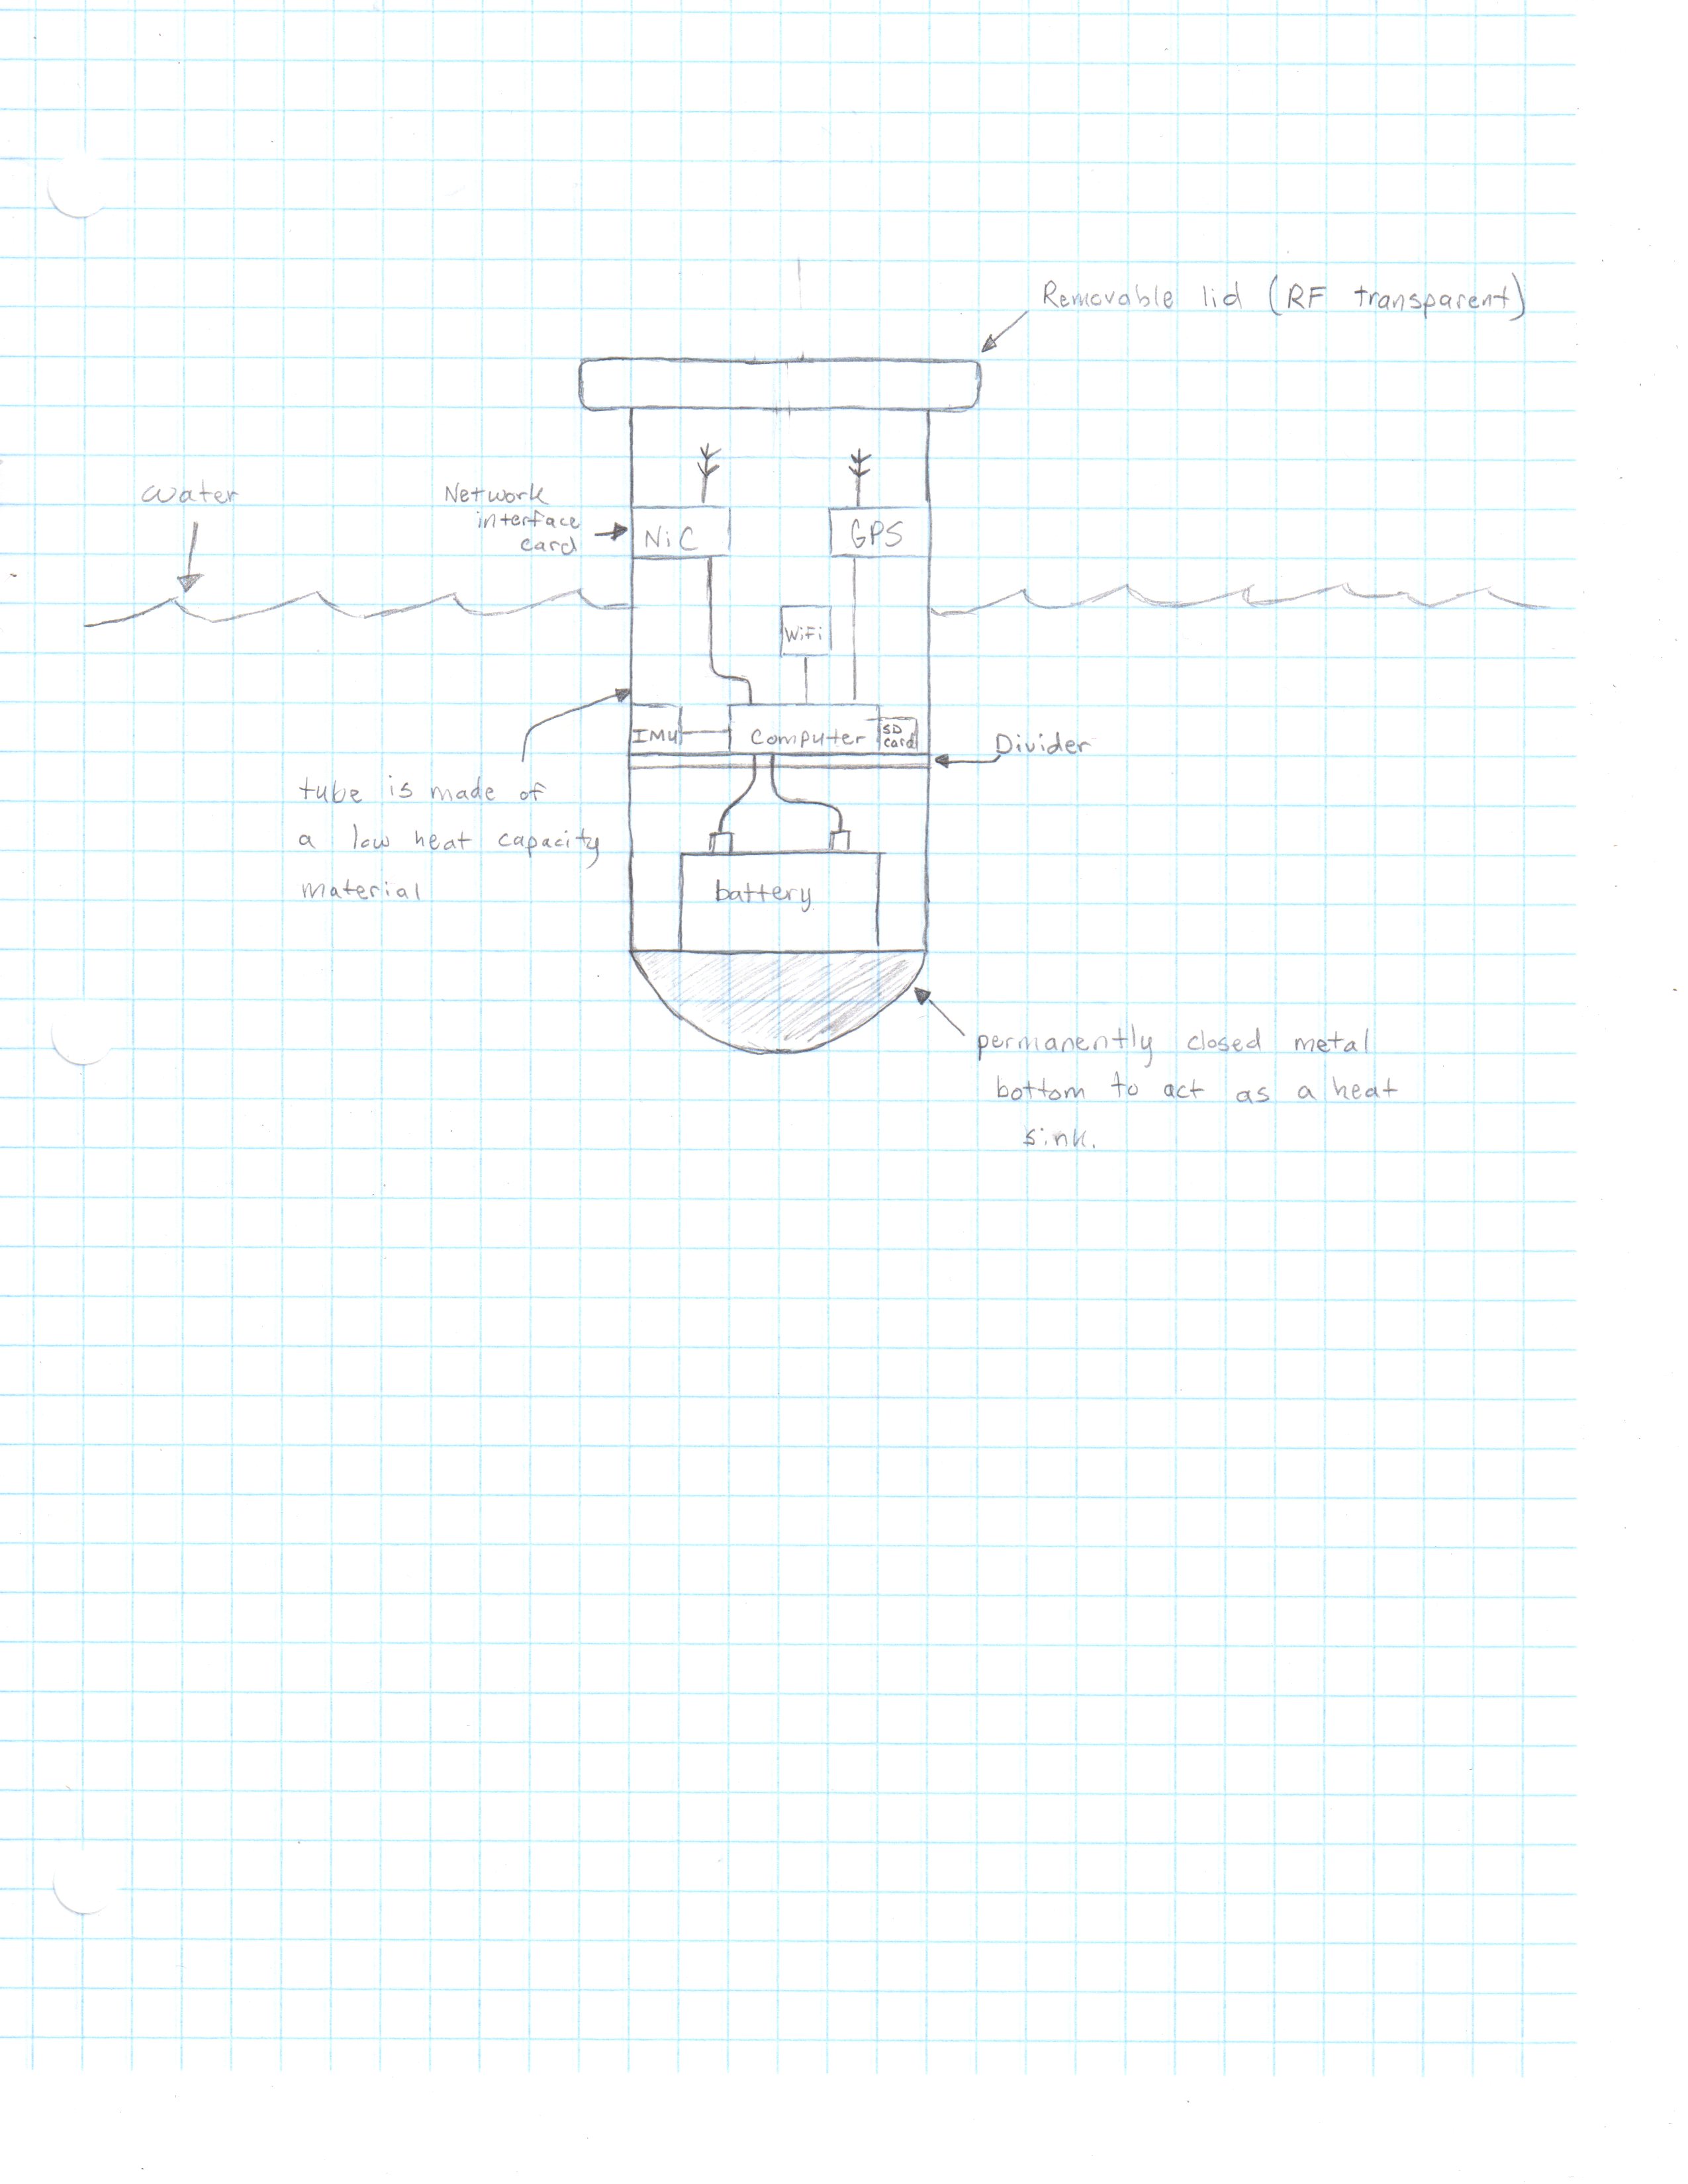 Removable lid (RF transparent)
water
Network
interface
card
NiC
GPS
WiFi
IMU
Computer
SD
card
Divider
tube is made of
a low heat capacity
material
battery
permanently closed metal
bottom to act as a heat
sink.